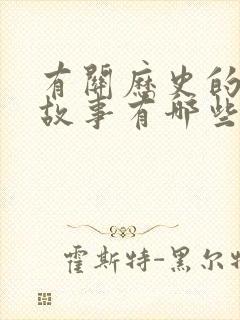 有關歷史的
故事有哪些
霍斯特-黑尔特